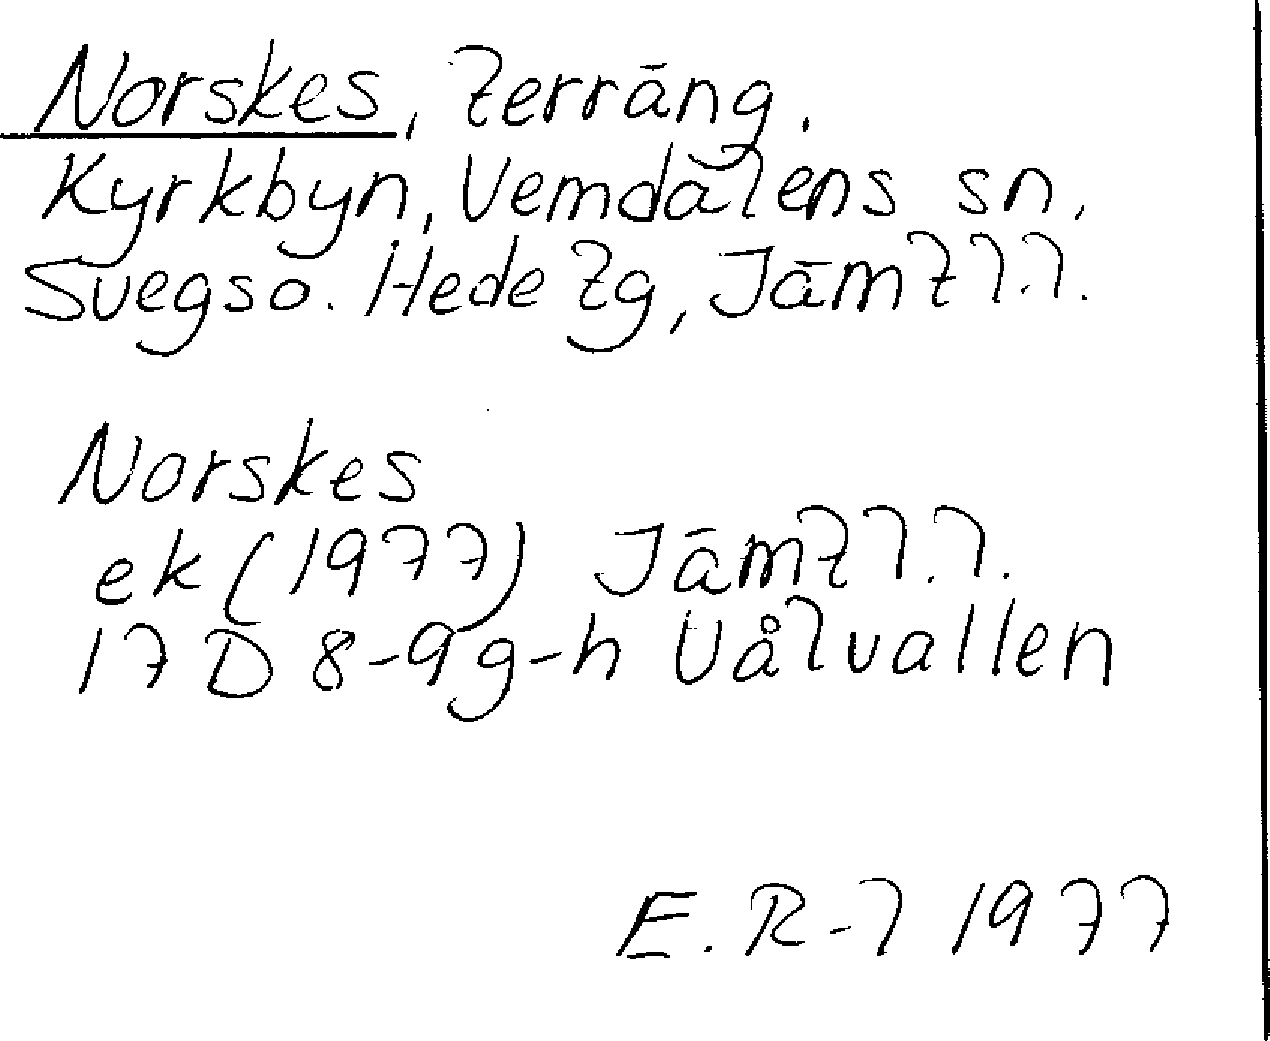 Norskes, terräng.
Kyrkbyn, Vemdalens sn,
Svegs o. Hede tg, Jämtl.l.
Norskes
ek (1977) Jämtl.l.
17 D 8-9g-h Vålvallen
E. R-l 1977